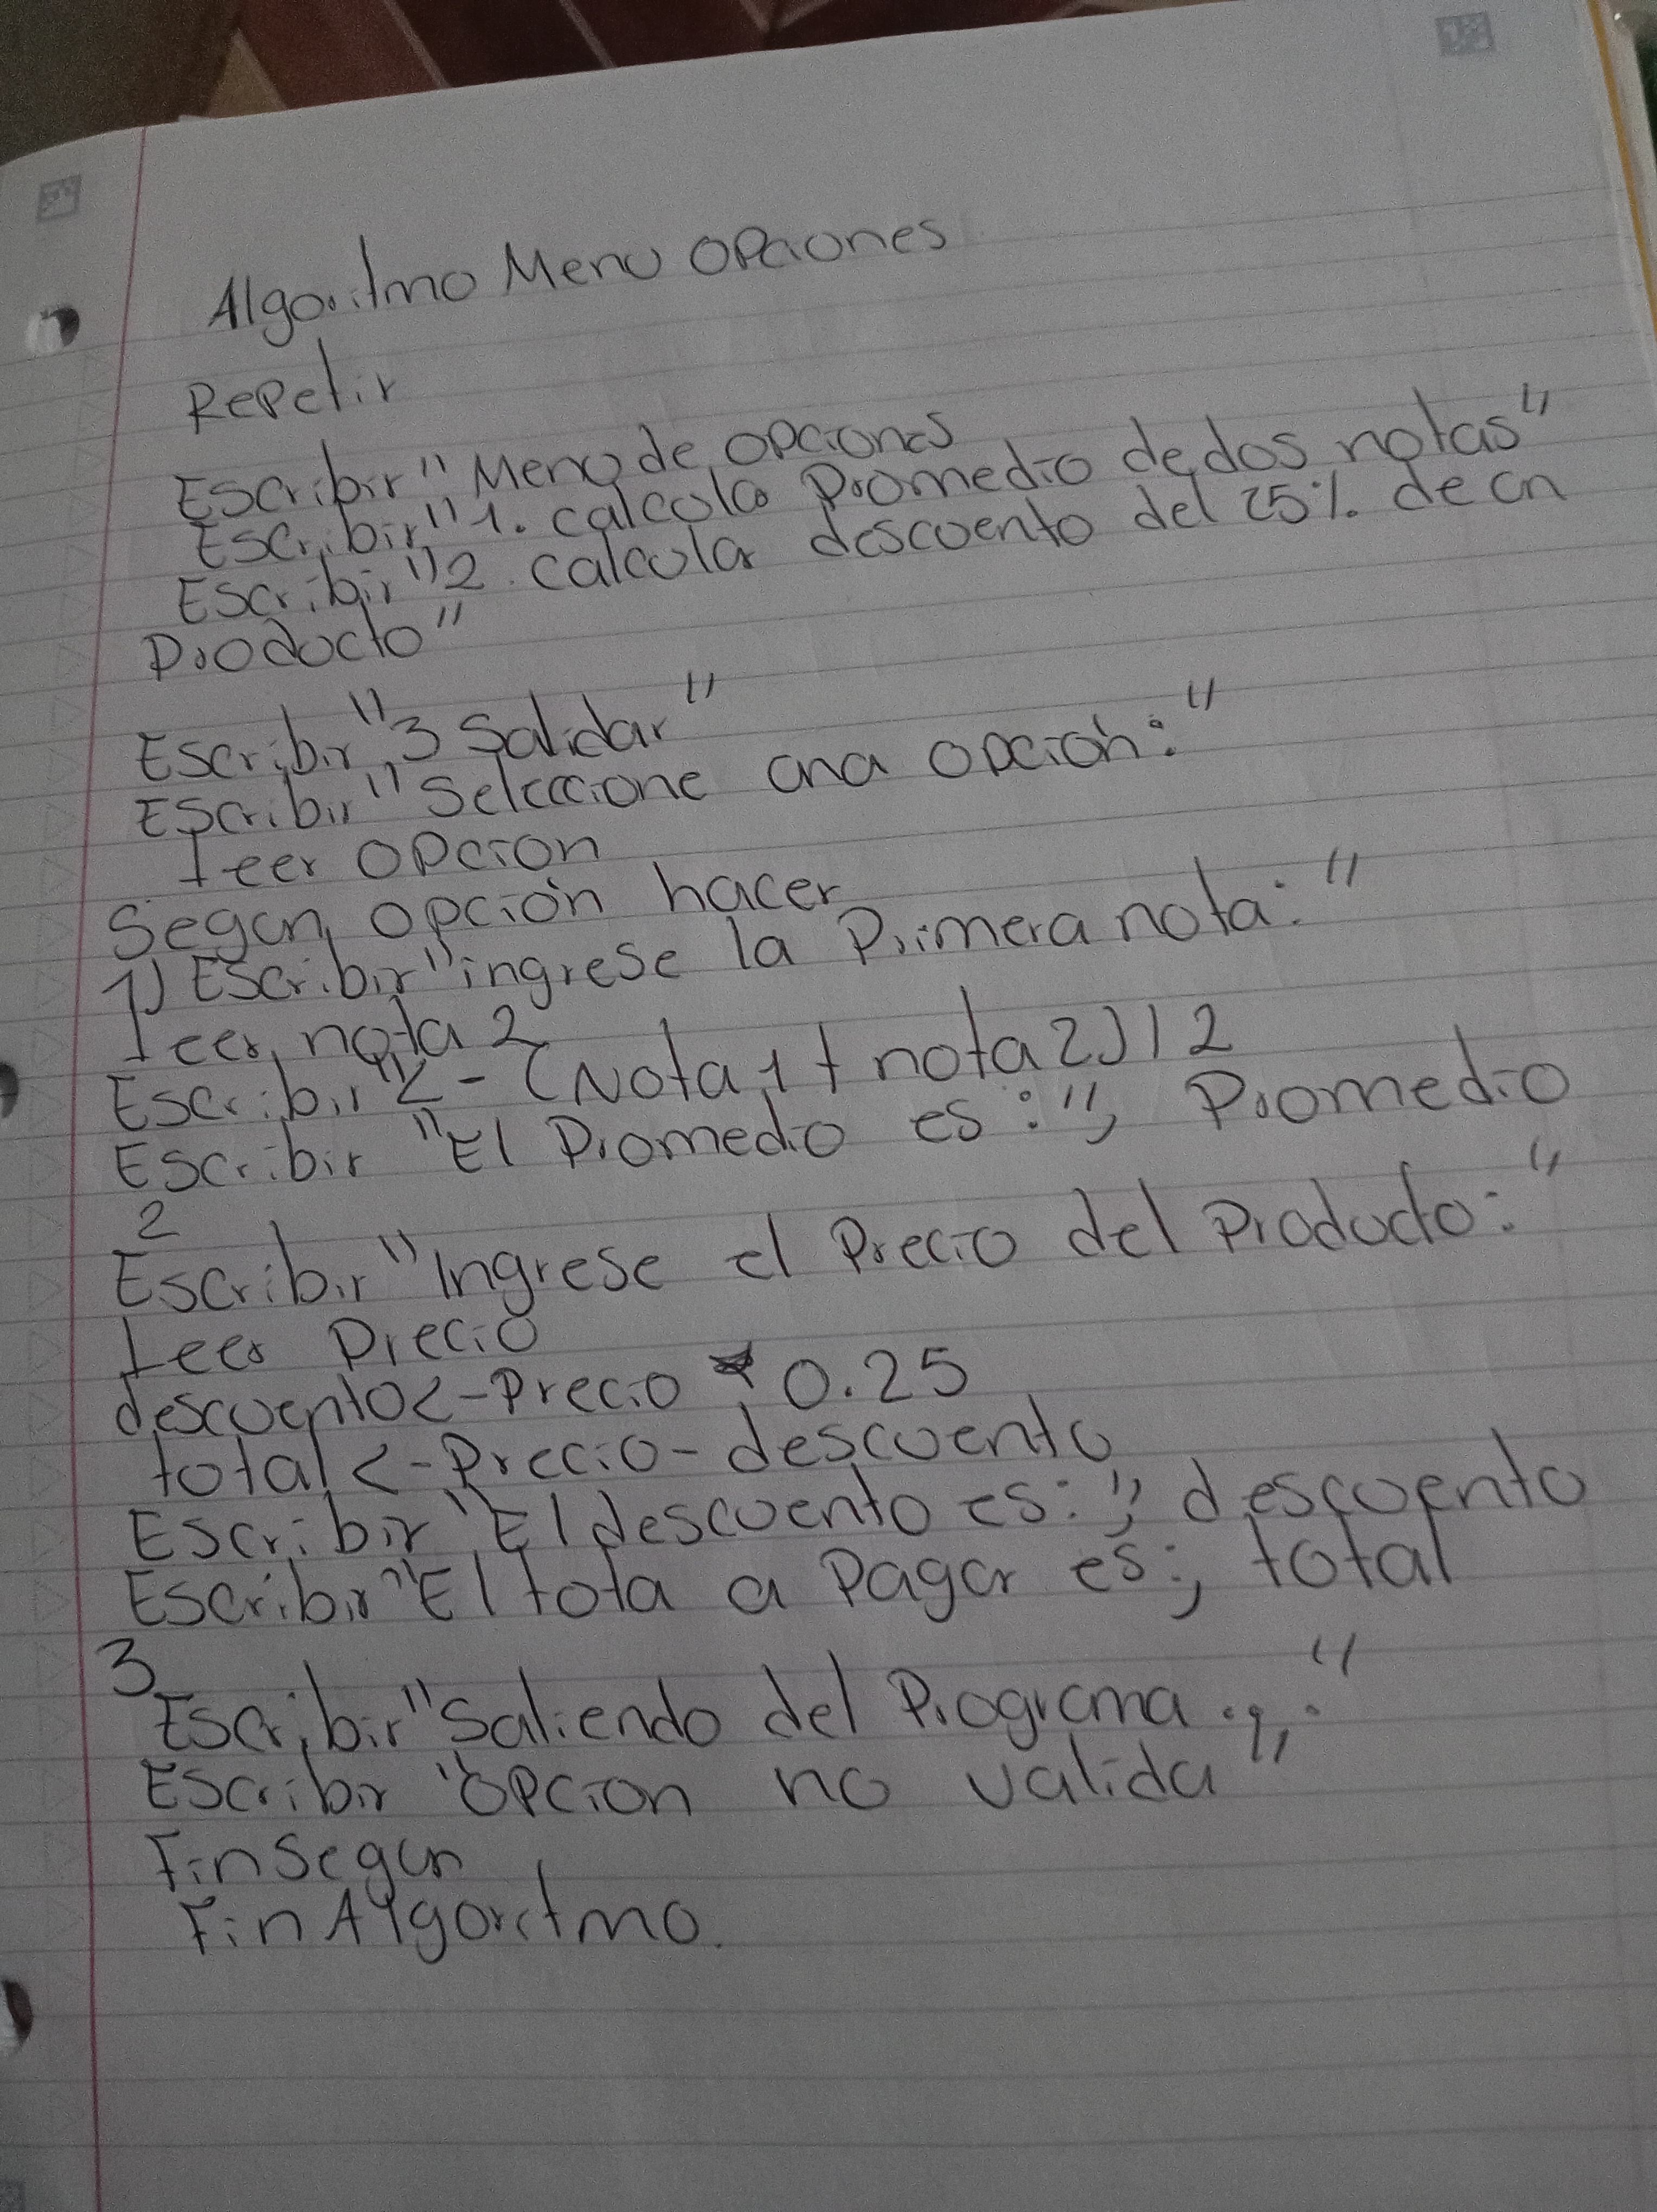 Algoritmo Menu Opciones
Repetir
Escribir "Menu de opciones
Escribir "1. calcula Promedio de dos notas"
Escribir "2. calcular descuento del 25% de un
Producto"
Escribir "3 Salidar"
Escribir "Seleccione una opción:"
Leer opcion
Segun opción hacer
1) Escribir "ingrese la Primera nota:"
Leer nota 2
Escribir "<-(Nota 1 + nota 2) / 2
Escribir "El Promedio es:", Promedio
2
Escribir "Ingrese el Precio del Producto:"
Leer Precio
descuento<-Precio * 0.25
total<-Precio-descuento
Escribir "El descuento es:", descuento
Escribir "El tota a Pagar es:, total
3
Escribir "Saliendo del Programa..."
Escribir "Opcion no valida"
FinSegun
FinAlgoritmo.